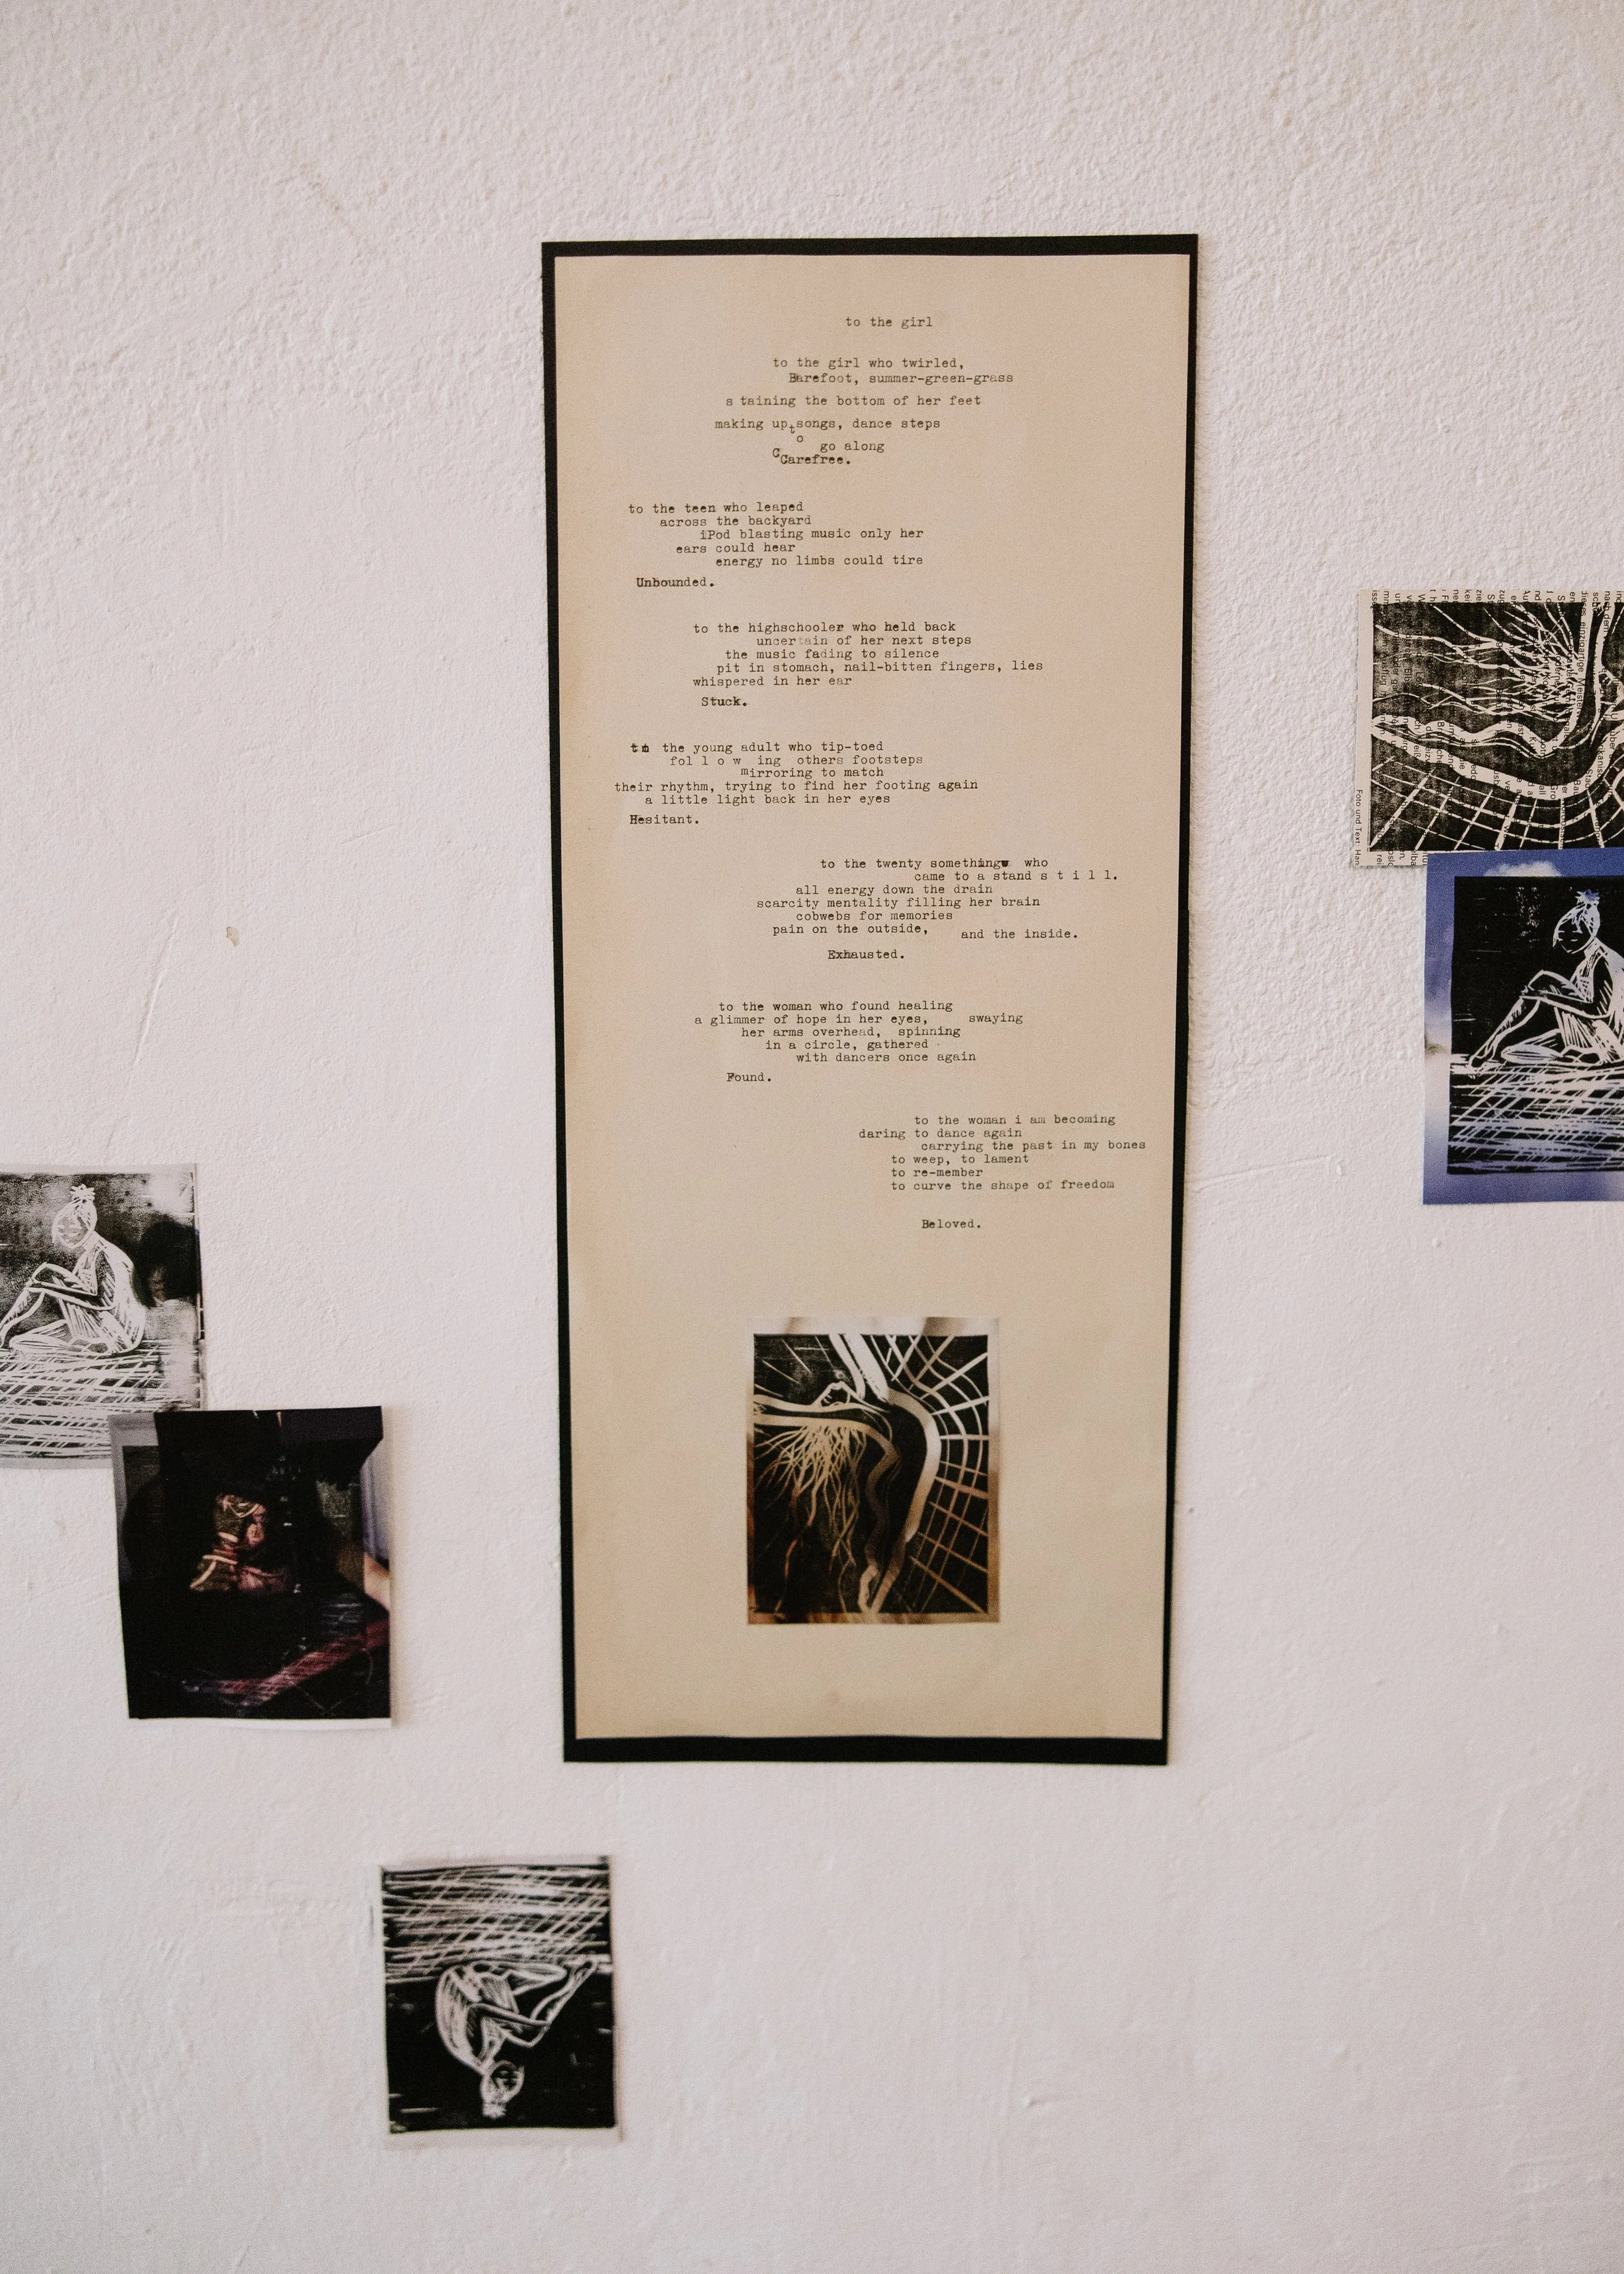 to the girl
to the girl who twirled,
Barefoot, summer-green-grass
s taining the bottom of her feet
making up songs, dance steps
to go along
Carefree.
to the teen who leaped
across the backyard
iPod blasting music only her
ears could hear
energy no limbs could tire
Unbounded.
to the highschooler who held back
uncertain of her next steps
the music fading to silence
pit in stomach, nail-bitten fingers, lies
whispered in her ear
Stuck.
to the young adult who tip-toed
fol l o w ing others footsteps
mirroring to match
their rhythm, trying to find her footing again
a little light back in her eyes
Hesitant.
to the twenty something who
came to a stand s t i l l.
all energy down the drain
scarcity mentality filling her brain
cobwebs for memories
pain on the outside, and the inside.
Exhausted.
to the woman who found healing
a glimmer of hope in her eyes, swaying
her arms overhead, spinning
in a circle, gathered
with dancers once again
Found.
to the woman i am becoming
daring to dance again
carrying the past in my bones
to weep, to lament
to re-member
to curve the shape of freedom
Beloved.
Foto und Text: Han